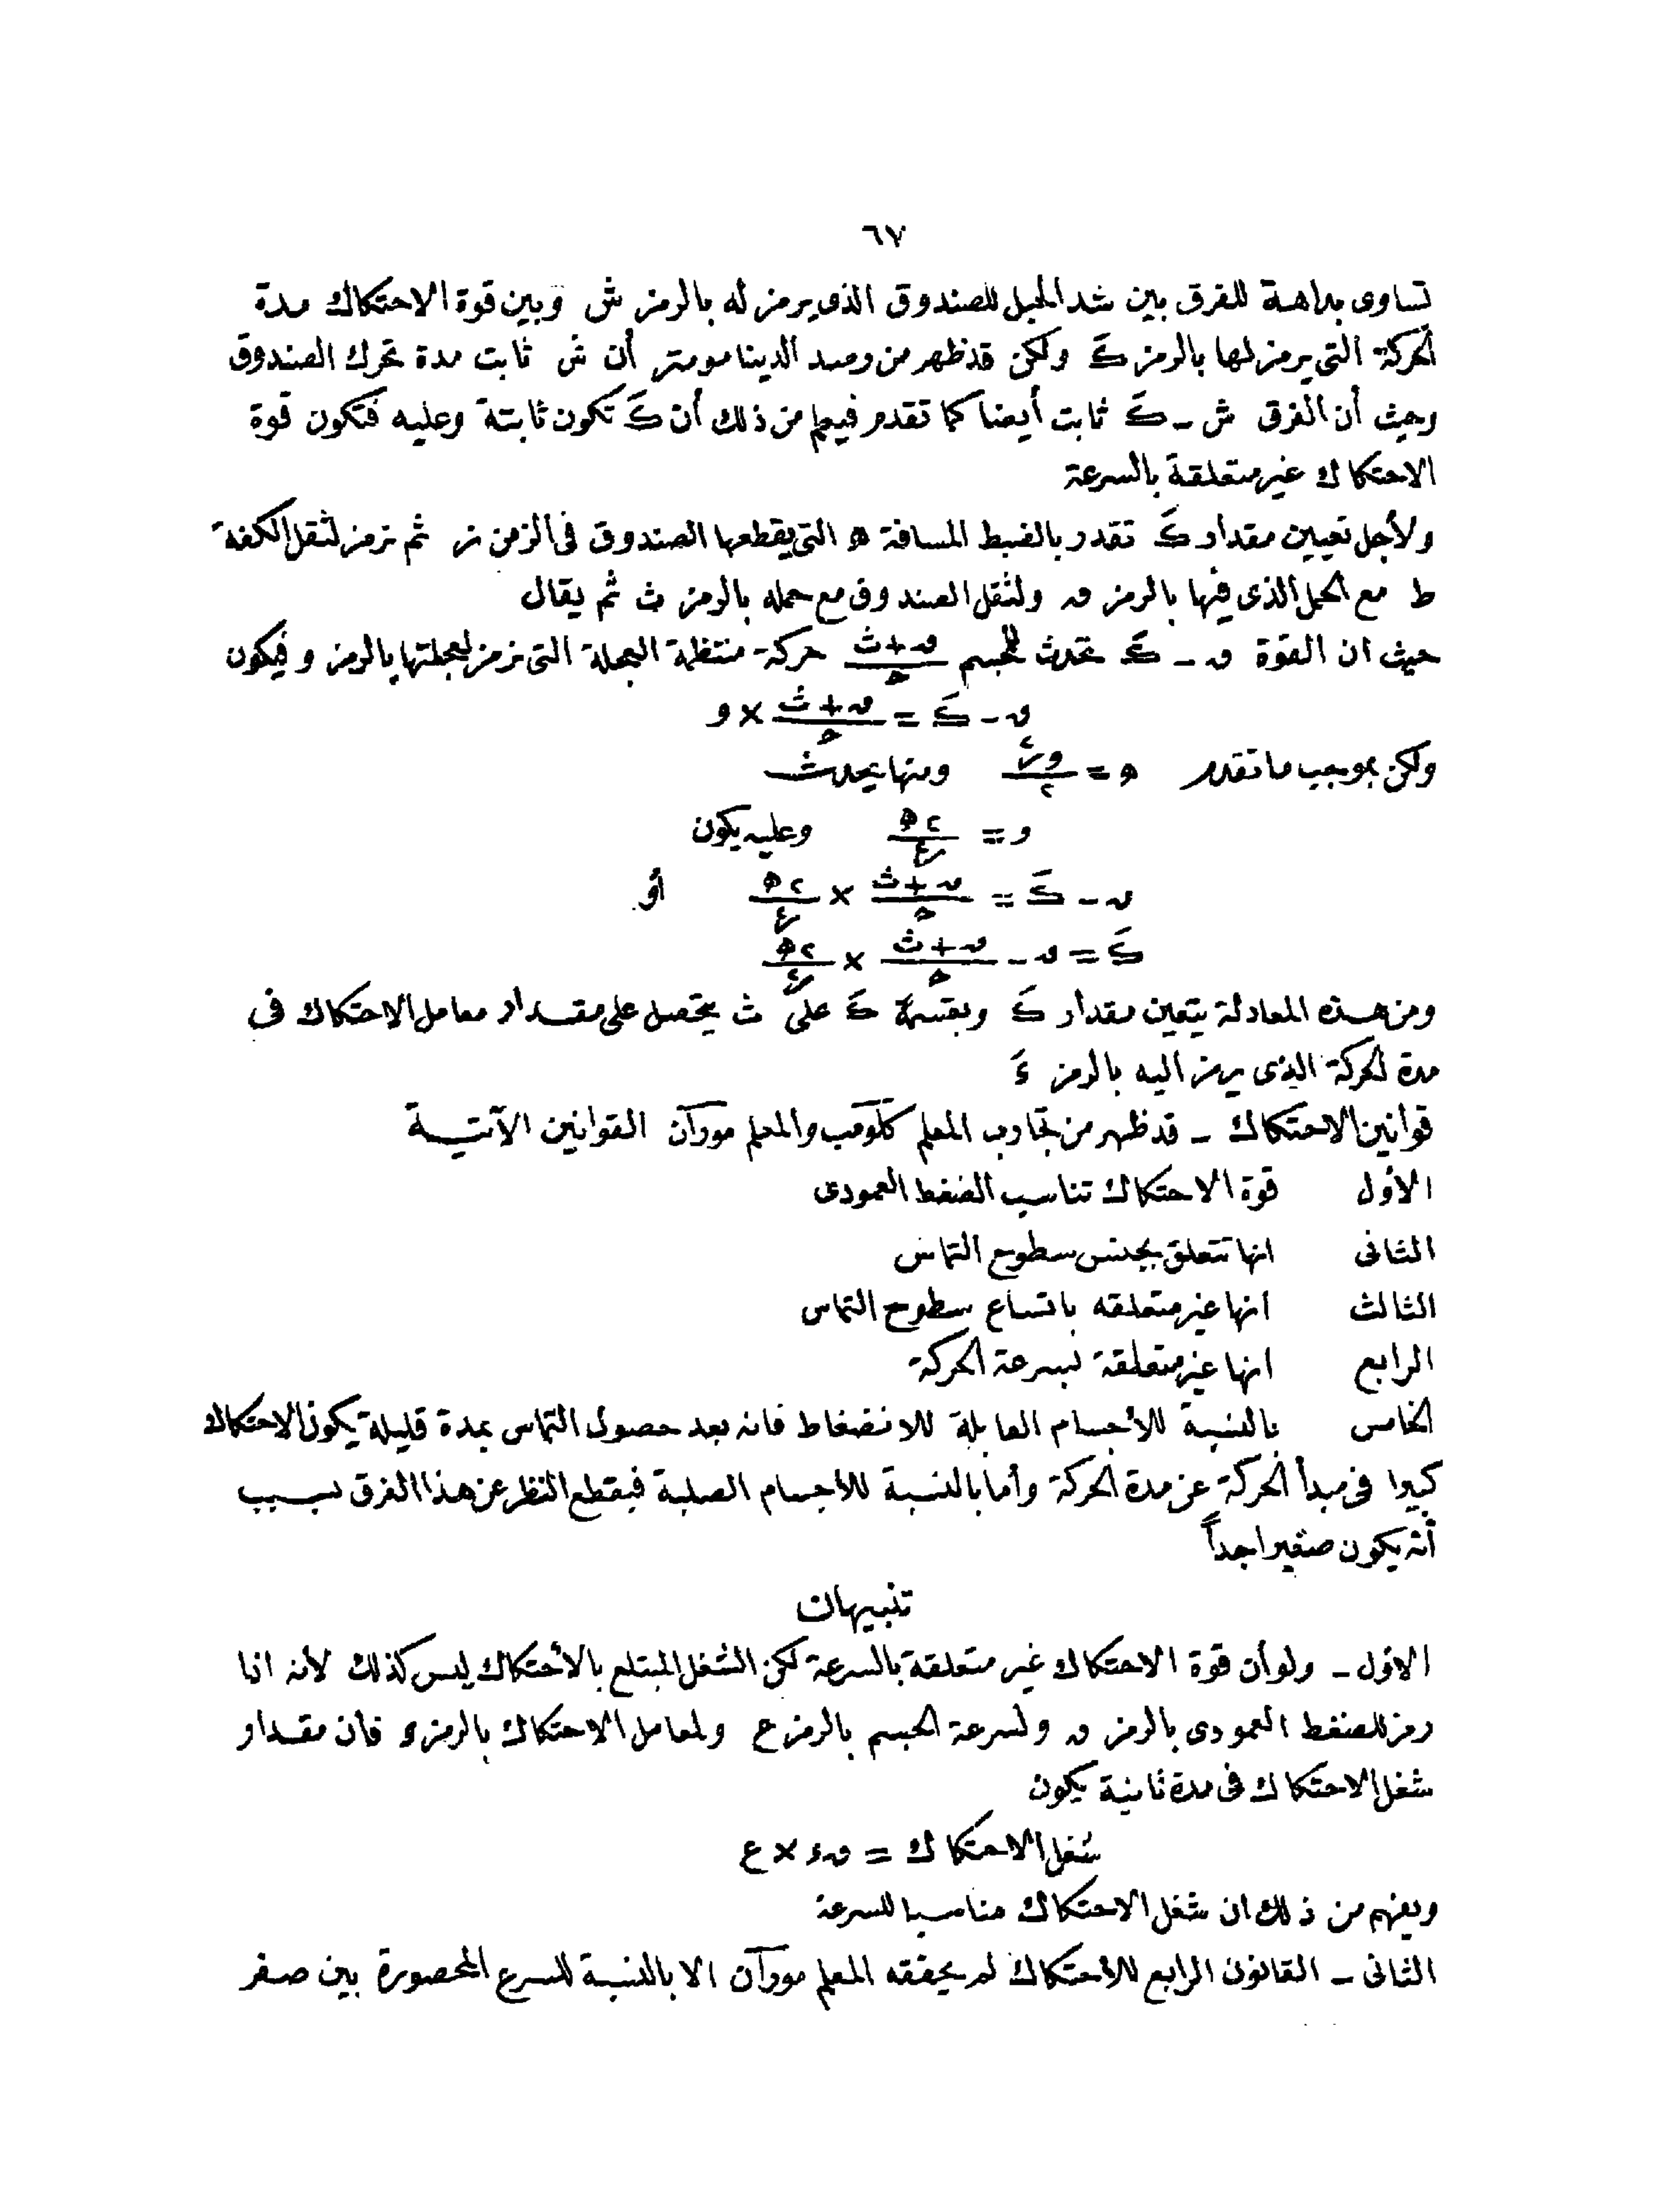 ٦٧
تساوى بداهة للفرق بين شد الحبل للصندوق الذى يرمز له بالرمز ش وبين قوة الاحتكاك مدة
الحركة التى يرمز لها بالرمز كَ ولكن قد ظهر من رصد الدينامومتر أن ش ثابت مدة تحرك الصندوق
وحيث أن الفرق ش ـ كَ ثابت أيضا كما تقدم فيعلم من ذلك أن كَ تكون ثابتة وعليه فتكون قوة
الاحتكاك غير متعلقة بالسرعة
ولأجل تعيين مقدار كَ تقدر بالضبط المسافة ھ التى يقطعها الصندوق فى الزمن ز ثم نرمز لثقل الكفة
ط مع الحمل الذى فيها بالرمز ں ولثقل الصندوق مع حمله بالرمز ث ثم يقال
حيث ان القوة ں ـ كَ تحدث للجسم (ں + ث)/ح حركة منتظمة العجلة التى نرمز لعجلتها بالرمز و فيكون
ں ـ كَ = (ں + ث)/ح × و
ولكن بموجب ما تقدم ھ = و ز٢/٢ ومنها يحدث
و = ٢ھ/ز٢ وعليه يكون
ں ـ كَ = (ں + ث)/ح × ٢ھ/ز٢ أو
كَ = ں ـ (ں + ث)/ح × ٢ھ/ز٢
ومن هذه المعادلة يتعين مقدار كَ وبقسمة كَ على ث يتحصل على مقدار معامل الاحتكاك فى
مدة الحركة الذى يرمز اليه بالرمز ءَ
قوانين الاحتكاك ـ قد ظهر من تجارب المعلم كلومب والمعلم موران القوانين الآتية
الأول قوة الاحتكاك تناسب الضغط العمودى
الثانى انها تتعلق بجنس سطوح التماس
الثالث انها غير متعلقه باتساع سطوح التماس
الرابع انها غير متعلقة بسرعة الحركة
الخامس بالنسبة للأجسام القابلة للانضغاط فانه بعد حصول التماس بمدة قليلة يكون الاحتكاك
كبيرا فى مبدأ الحركة عن مدة الحركة وأما بالنسبة للأجسام الصلبة فيقطع النظر عن هذا الفرق بسبب
أنه يكون صغيرا جداً
تنبيهان
الاول ـ ولو أن قوة الاحتكاك غير متعلقة بالسرعة لكن الشغل المبتلع بالأحتكاك ليس كذلك لأنه اذا
رمز للضغط العمودى بالرمز ں ولسرعة الجسم بالرمز ع ولمعامل الاحتكاك بالرمز ء فان مقدار
شغل الاحتكاك فى مدة ثانية يكون
شغل الاحتكاك = ں ء × ع
ويفهم من ذلك ان شغل الاحتكاك مناسبا للسرعة
الثانى ـ القانون الرابع للأحتكاك لم يحققه المعلم موران الا بالنسبة للسرع المحصورة بين صفر